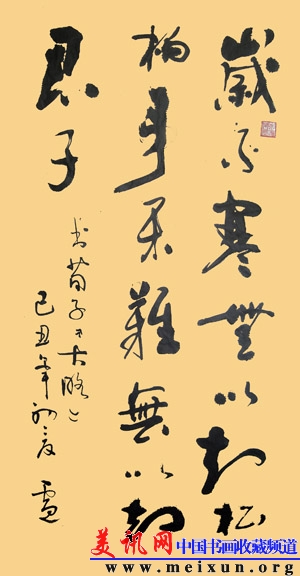 歲不寒無以知松
柏事不難無以知
君子
书荀子《大略》
己丑年初夏
美讯网 中国书画收藏频道
www.meixun.org